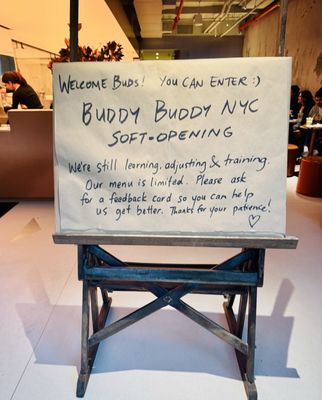 Welcome Buds! You can enter :)
Buddy Buddy NYC
Soft-Opening
We're still learning, adjusting & training.
Our menu is limited. Please ask
for a feedback card so you can help
us get better. Thanks for your patience! ♡